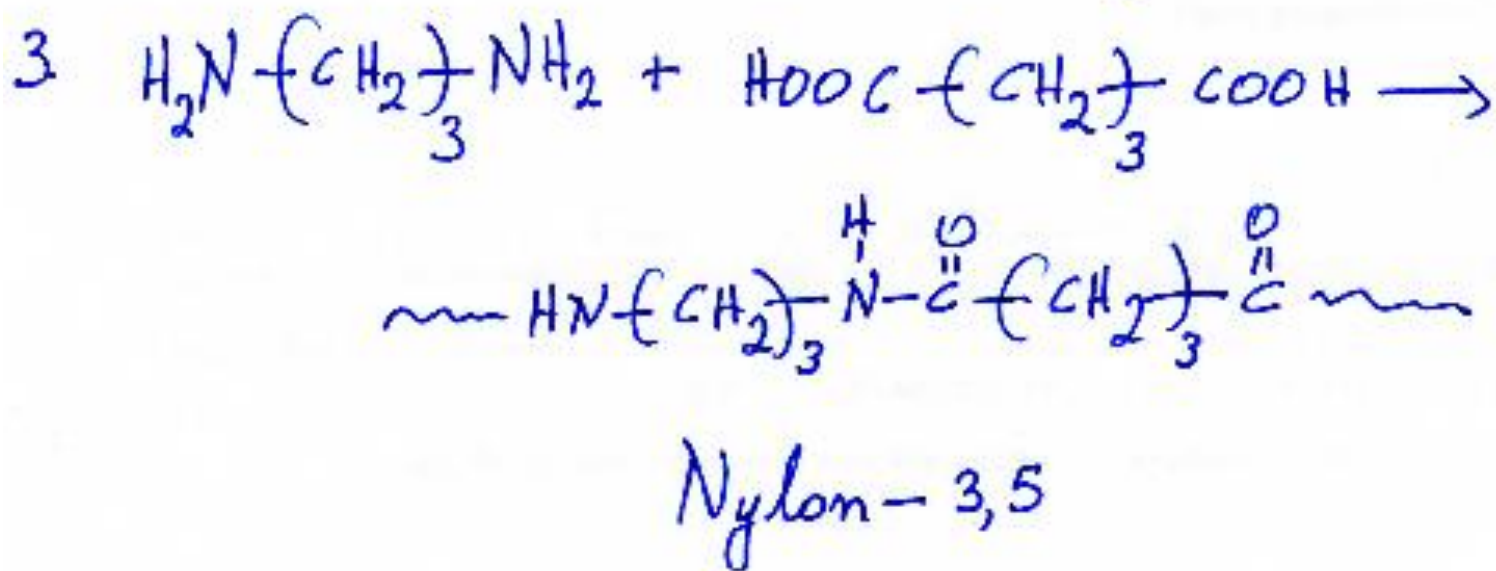 3 H₂N-(CH₂)₃-NH₂ + HOOC-(CH₂)₃-COOH →
H O O
~ HN-(CH₂)₃-N-C-(CH₂)₃-C ~
Nylon - 3,5